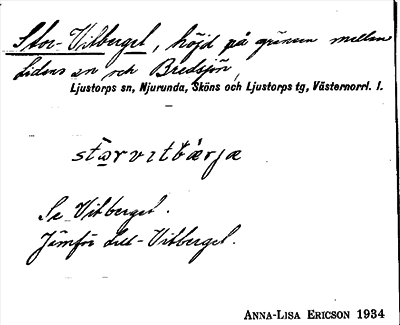 Stor-Vitberget, höjd på gränsen mellan
Lidens sn och Bredsjön,
Ljustorps sn, Njurunda, Sköns och Ljustorps tg, Västernorrl. l.
stɷrvɪtbærjæ
Se Vitberget.
Jämför Lill-Vitberget.
ANNA-LISA ERICSON 1934